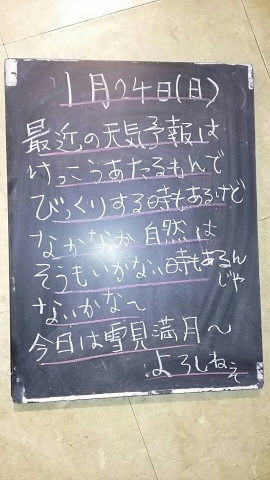 1月24日(日)
最近の天気予報は
けっこうあたるもんで
びっくりする時もあるけど
なかなか自然は
そうもいかない時もあるん
じゃ
ないかな〜
今日は雪見満月〜
よろしねぇ